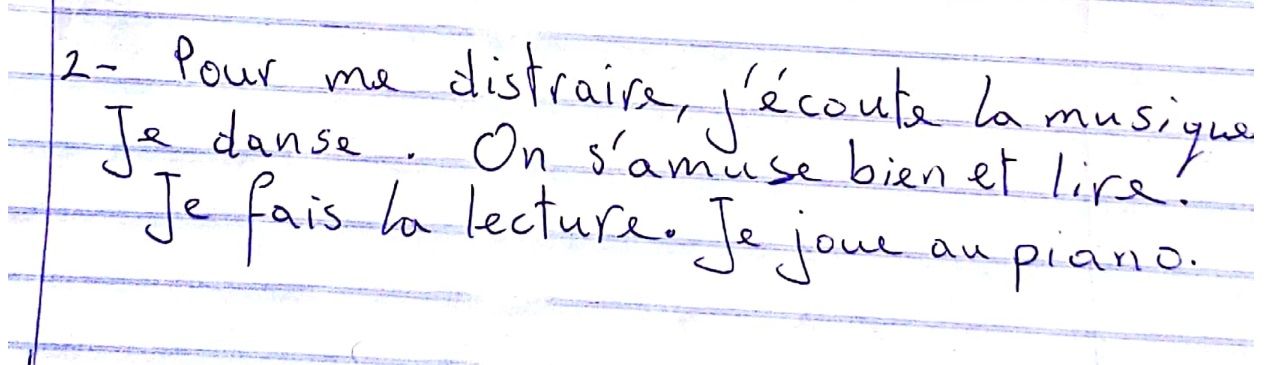 2- Pour me distraire, j'écoute la musique
Je danse. On s'amuse bien et lire.
Je fais la lecture. Je joue au piano.